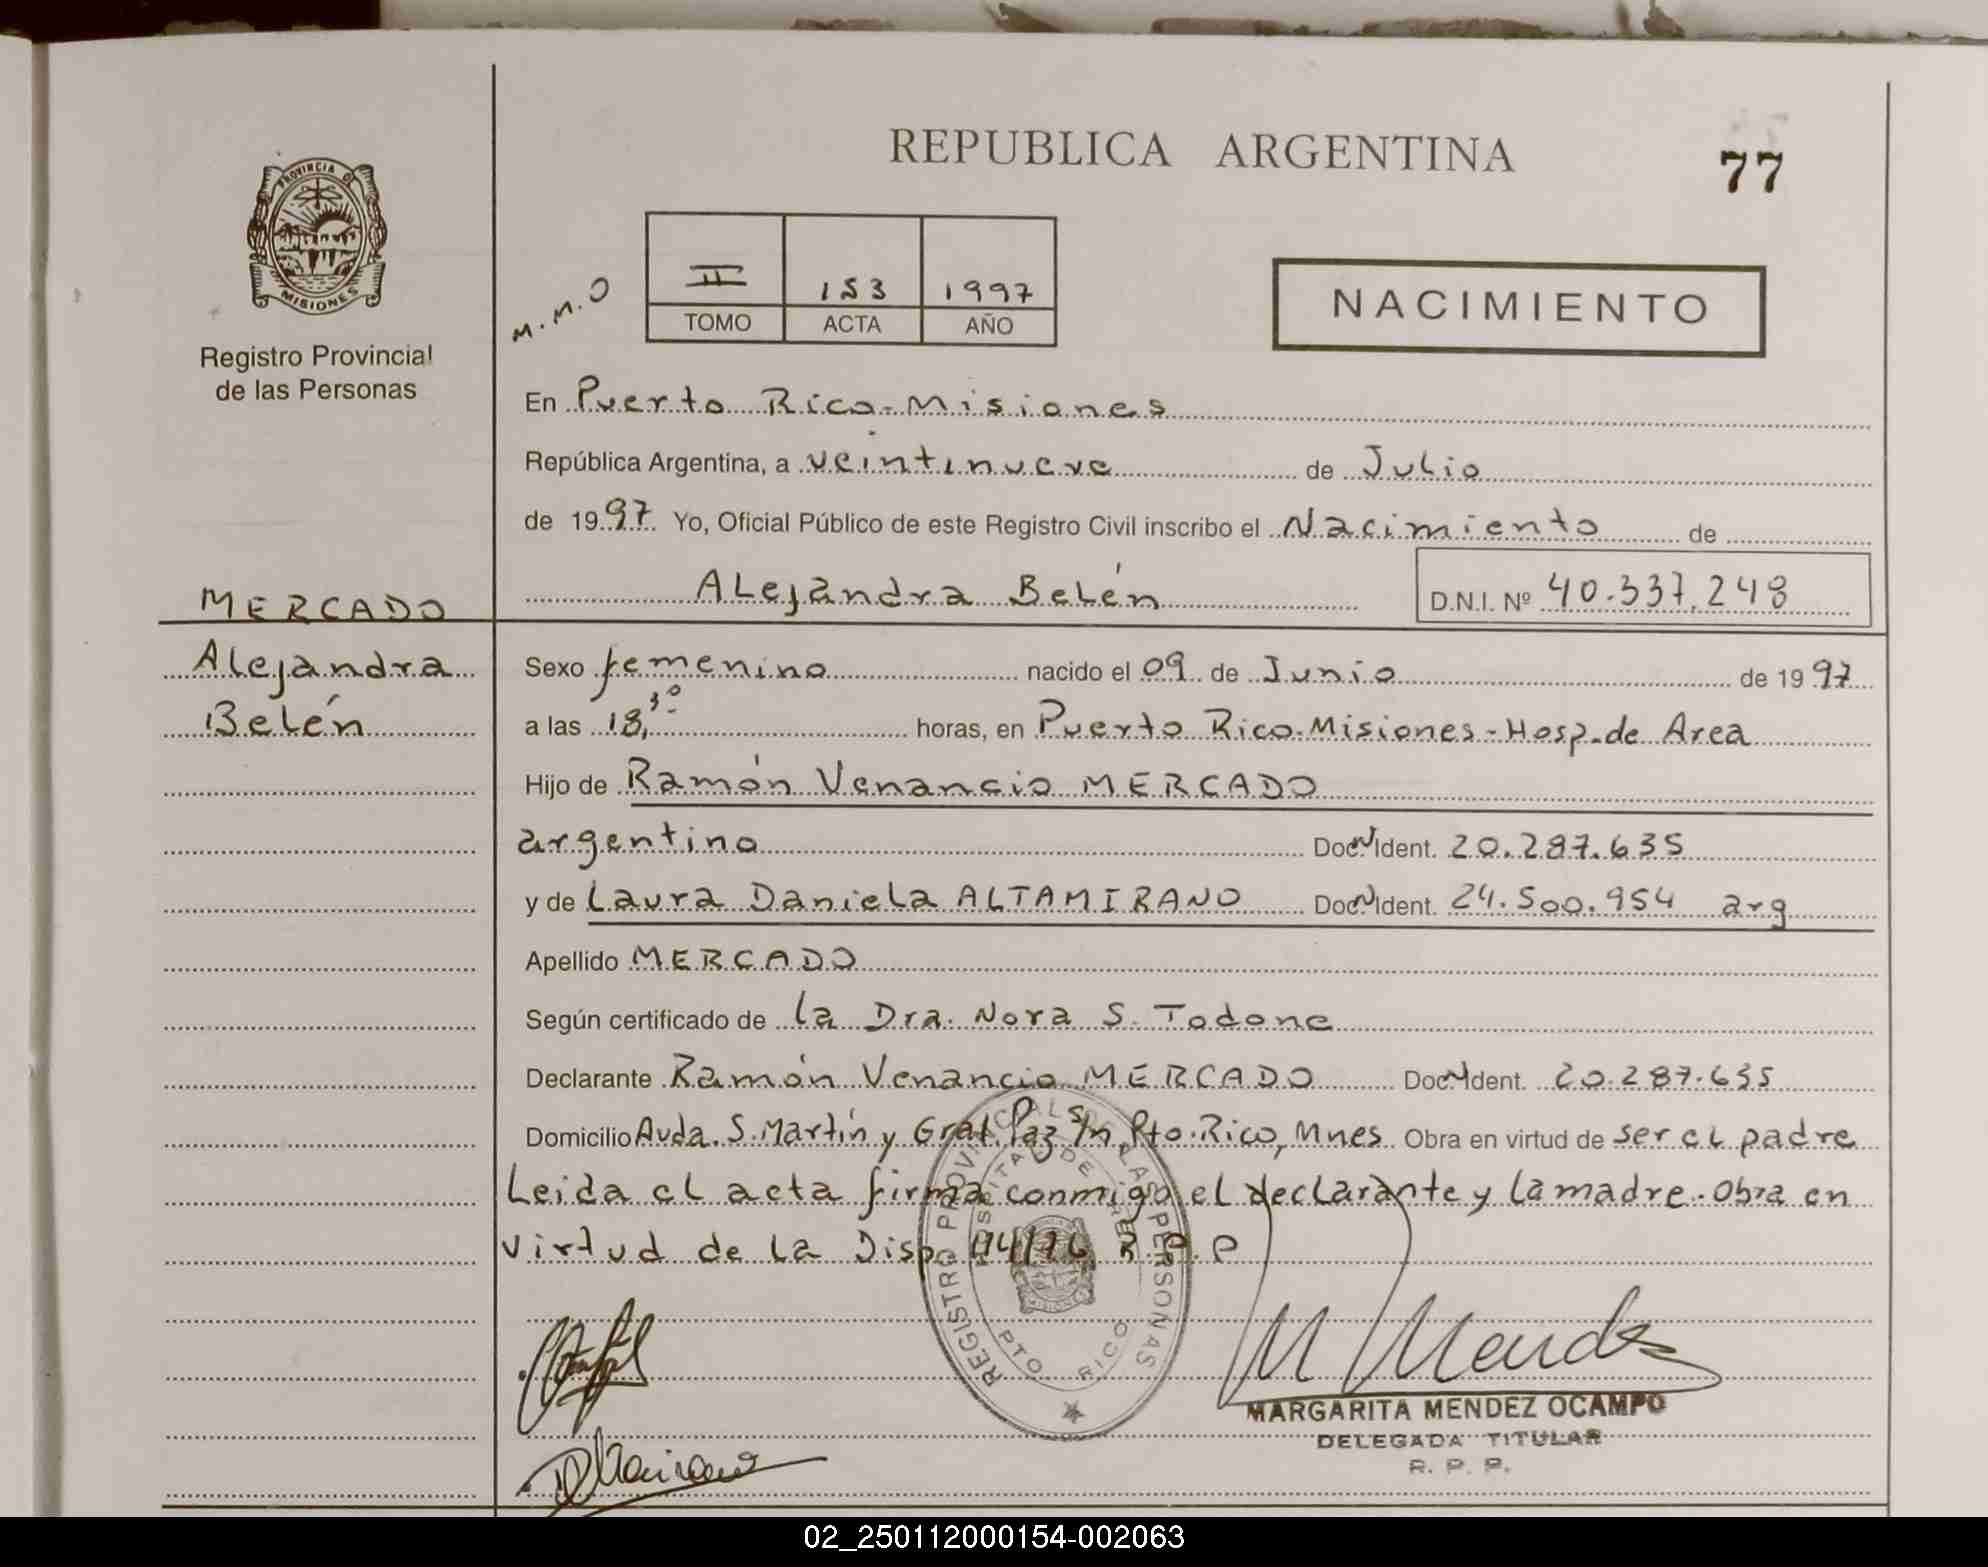 REPUBLICA ARGENTINA
77
PROVINCIA DE
MISIONES
Registro Provincial
de las Personas
M.M.O
II 153 1997
TOMO ACTA AÑO
NACIMIENTO
En Puerto Rico-Misiones
República Argentina, a veintinueve de Julio
de 1997 Yo, Oficial Público de este Registro Civil inscribo el Nacimiento de
Alejandra Belén D.N.I. Nº 40.337.248
MERCADO
Alejandra
Belén
Sexo femenino nacido el 09 de Junio de 1997
a las 18,30 horas, en Puerto Rico-Misiones-Hosp. de Area
Hijo de Ramón Venancio MERCADO
argentino Doc. Ident. 20.287.635
y de Laura Daniela ALTAMIRANO Doc. Ident. 24.500.954 arg
Apellido MERCADO
Según certificado de la Dra. Nora S. Todone
Declarante Ramón Venancio MERCADO Doc. Ident. 20.287.635
Domicilio Avda. S. Martín y Gral. Paz s/n, Pto. Rico, Mnes. Obra en virtud de ser el padre
Leida el acta firma conmigo el declarante y la madre. Obra en
virtud de la Disp. R.P.P
REGISTRO PROVINCIAL DE LAS PERSONAS
PTO RICO
M Mendez
MARGARITA MENDEZ OCAMPO
DELEGADA TITULAR
R. P. P.
02_250112000154-002063